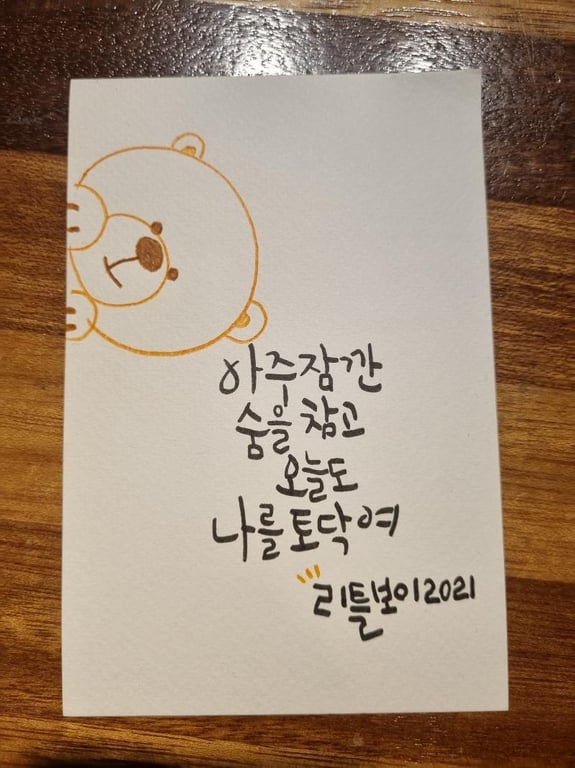 아주 잠깐
숨을 참고
오늘도
나를 토닥여
리틀보이 2021